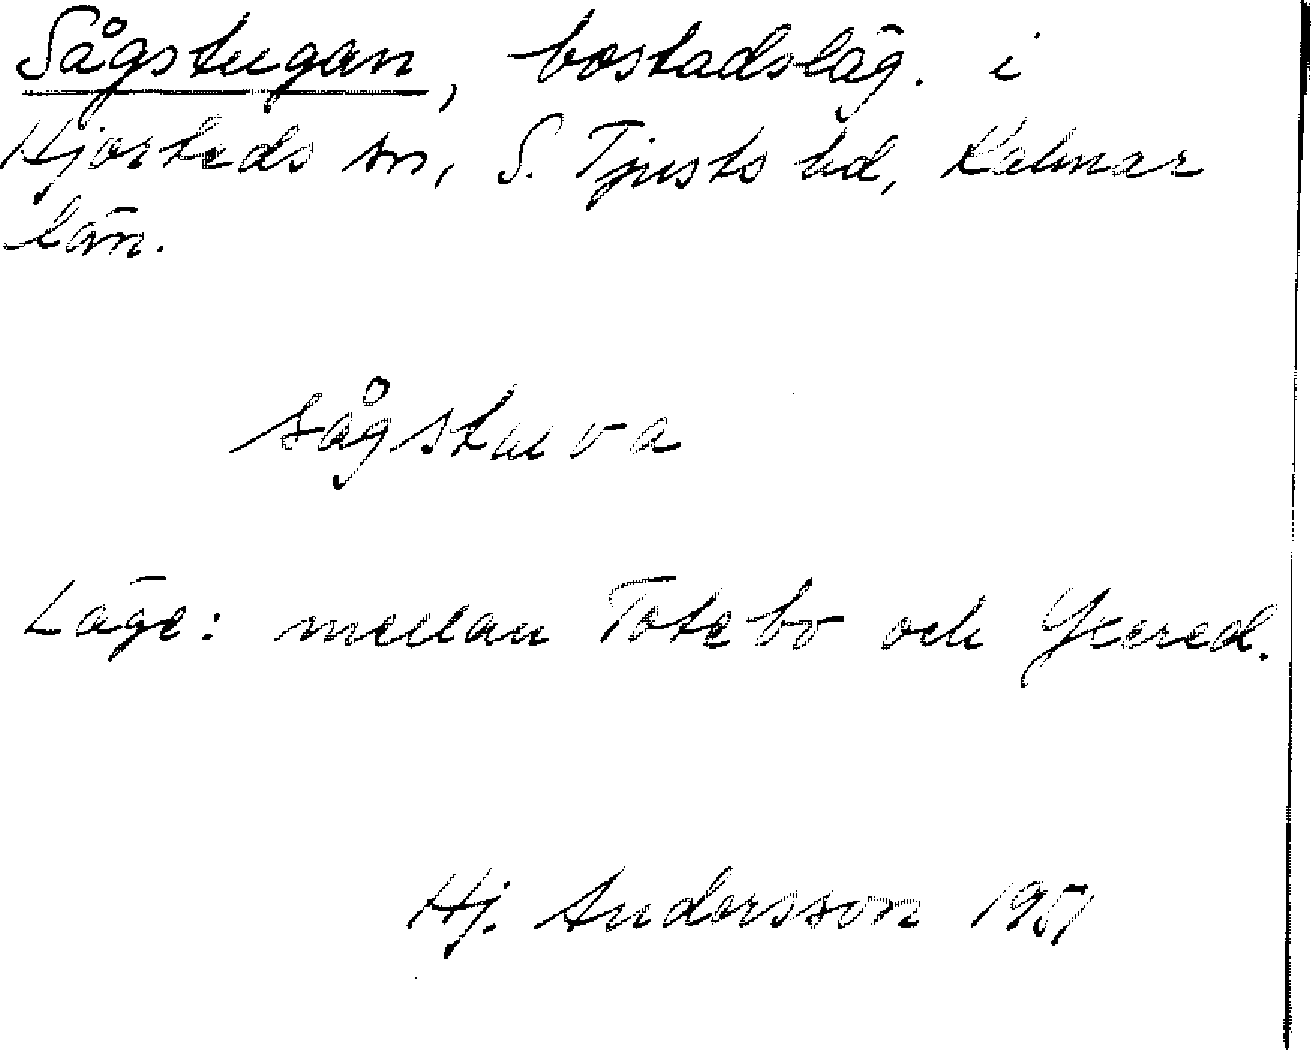 Sågstugan, bostadsläg. i
Hjorteds sn, S. Tjusts hd, Kalmar
län.
sågstuva
Läge: mellan Totebo och Ycered.
Hj. Andersson 1951